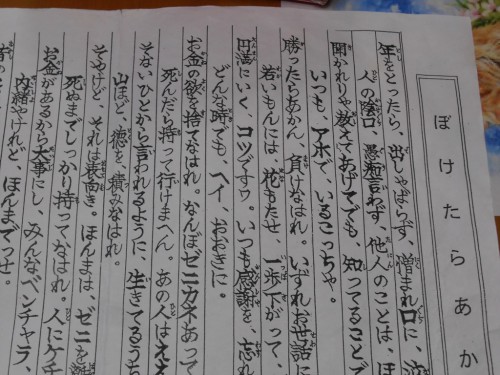 ぼけたらあか
年をとったら、出しゃばらず、憎まれ口に、
人の陰口、愚痴言わず、他人のことは、ほ
聞かれりゃ教えてあげてでも、知ってることで
いつも、アホで、いるこっちゃ。
勝ったらあかん、負けなはれ。いずれお世話に
若いもんには、花もたせ、一歩下がって、
円満にいく、コツですワ。いつも感謝を、忘れ
どんな時でも、ヘイ、おおきに。
お金の欲を捨てなはれ。なんぼゼニカネあって
死んだら持って行けまへん。あの人はええ
そないひとから言われるように、生きてるうち
山ほど、徳を、積みなはれ。
そやけど、それは表向き。ほんまは、ゼニを
死ぬまでしっかり持ってなはれ。人にケチ
お金があるから大事にし、みんなベンチャラ、
内緒やけれど、ほんまでっせ。